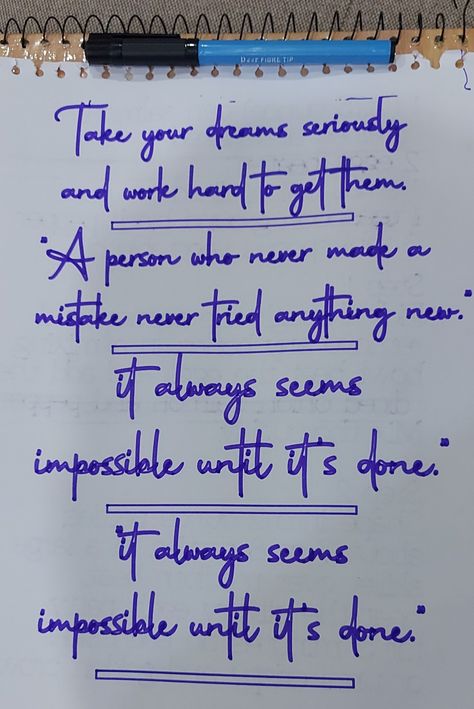 Take your dreams seriously
and work hard to get them.
"A person who never made a
mistake never tried anything new."
it always seems
impossible until it's done."
"it always seems
impossible until it's done."